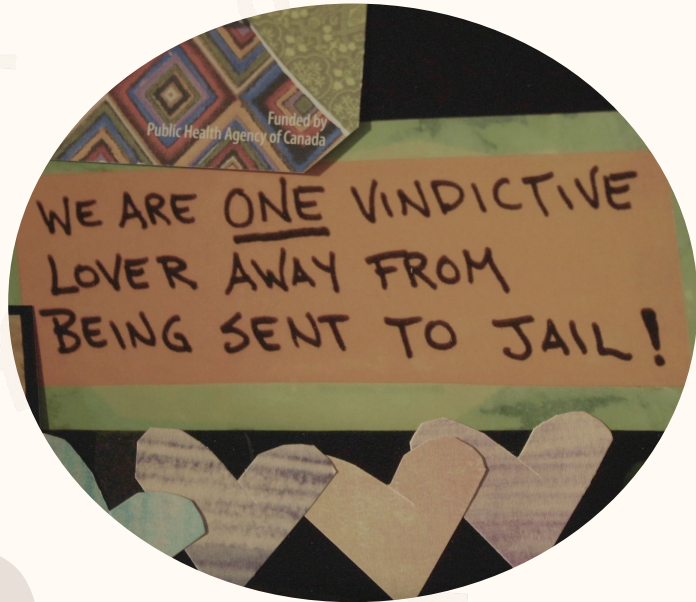 Funded by
Public Health Agency of Canada
WE ARE ONE VINDICTIVE
LOVER AWAY FROM
BEING SENT TO JAIL!